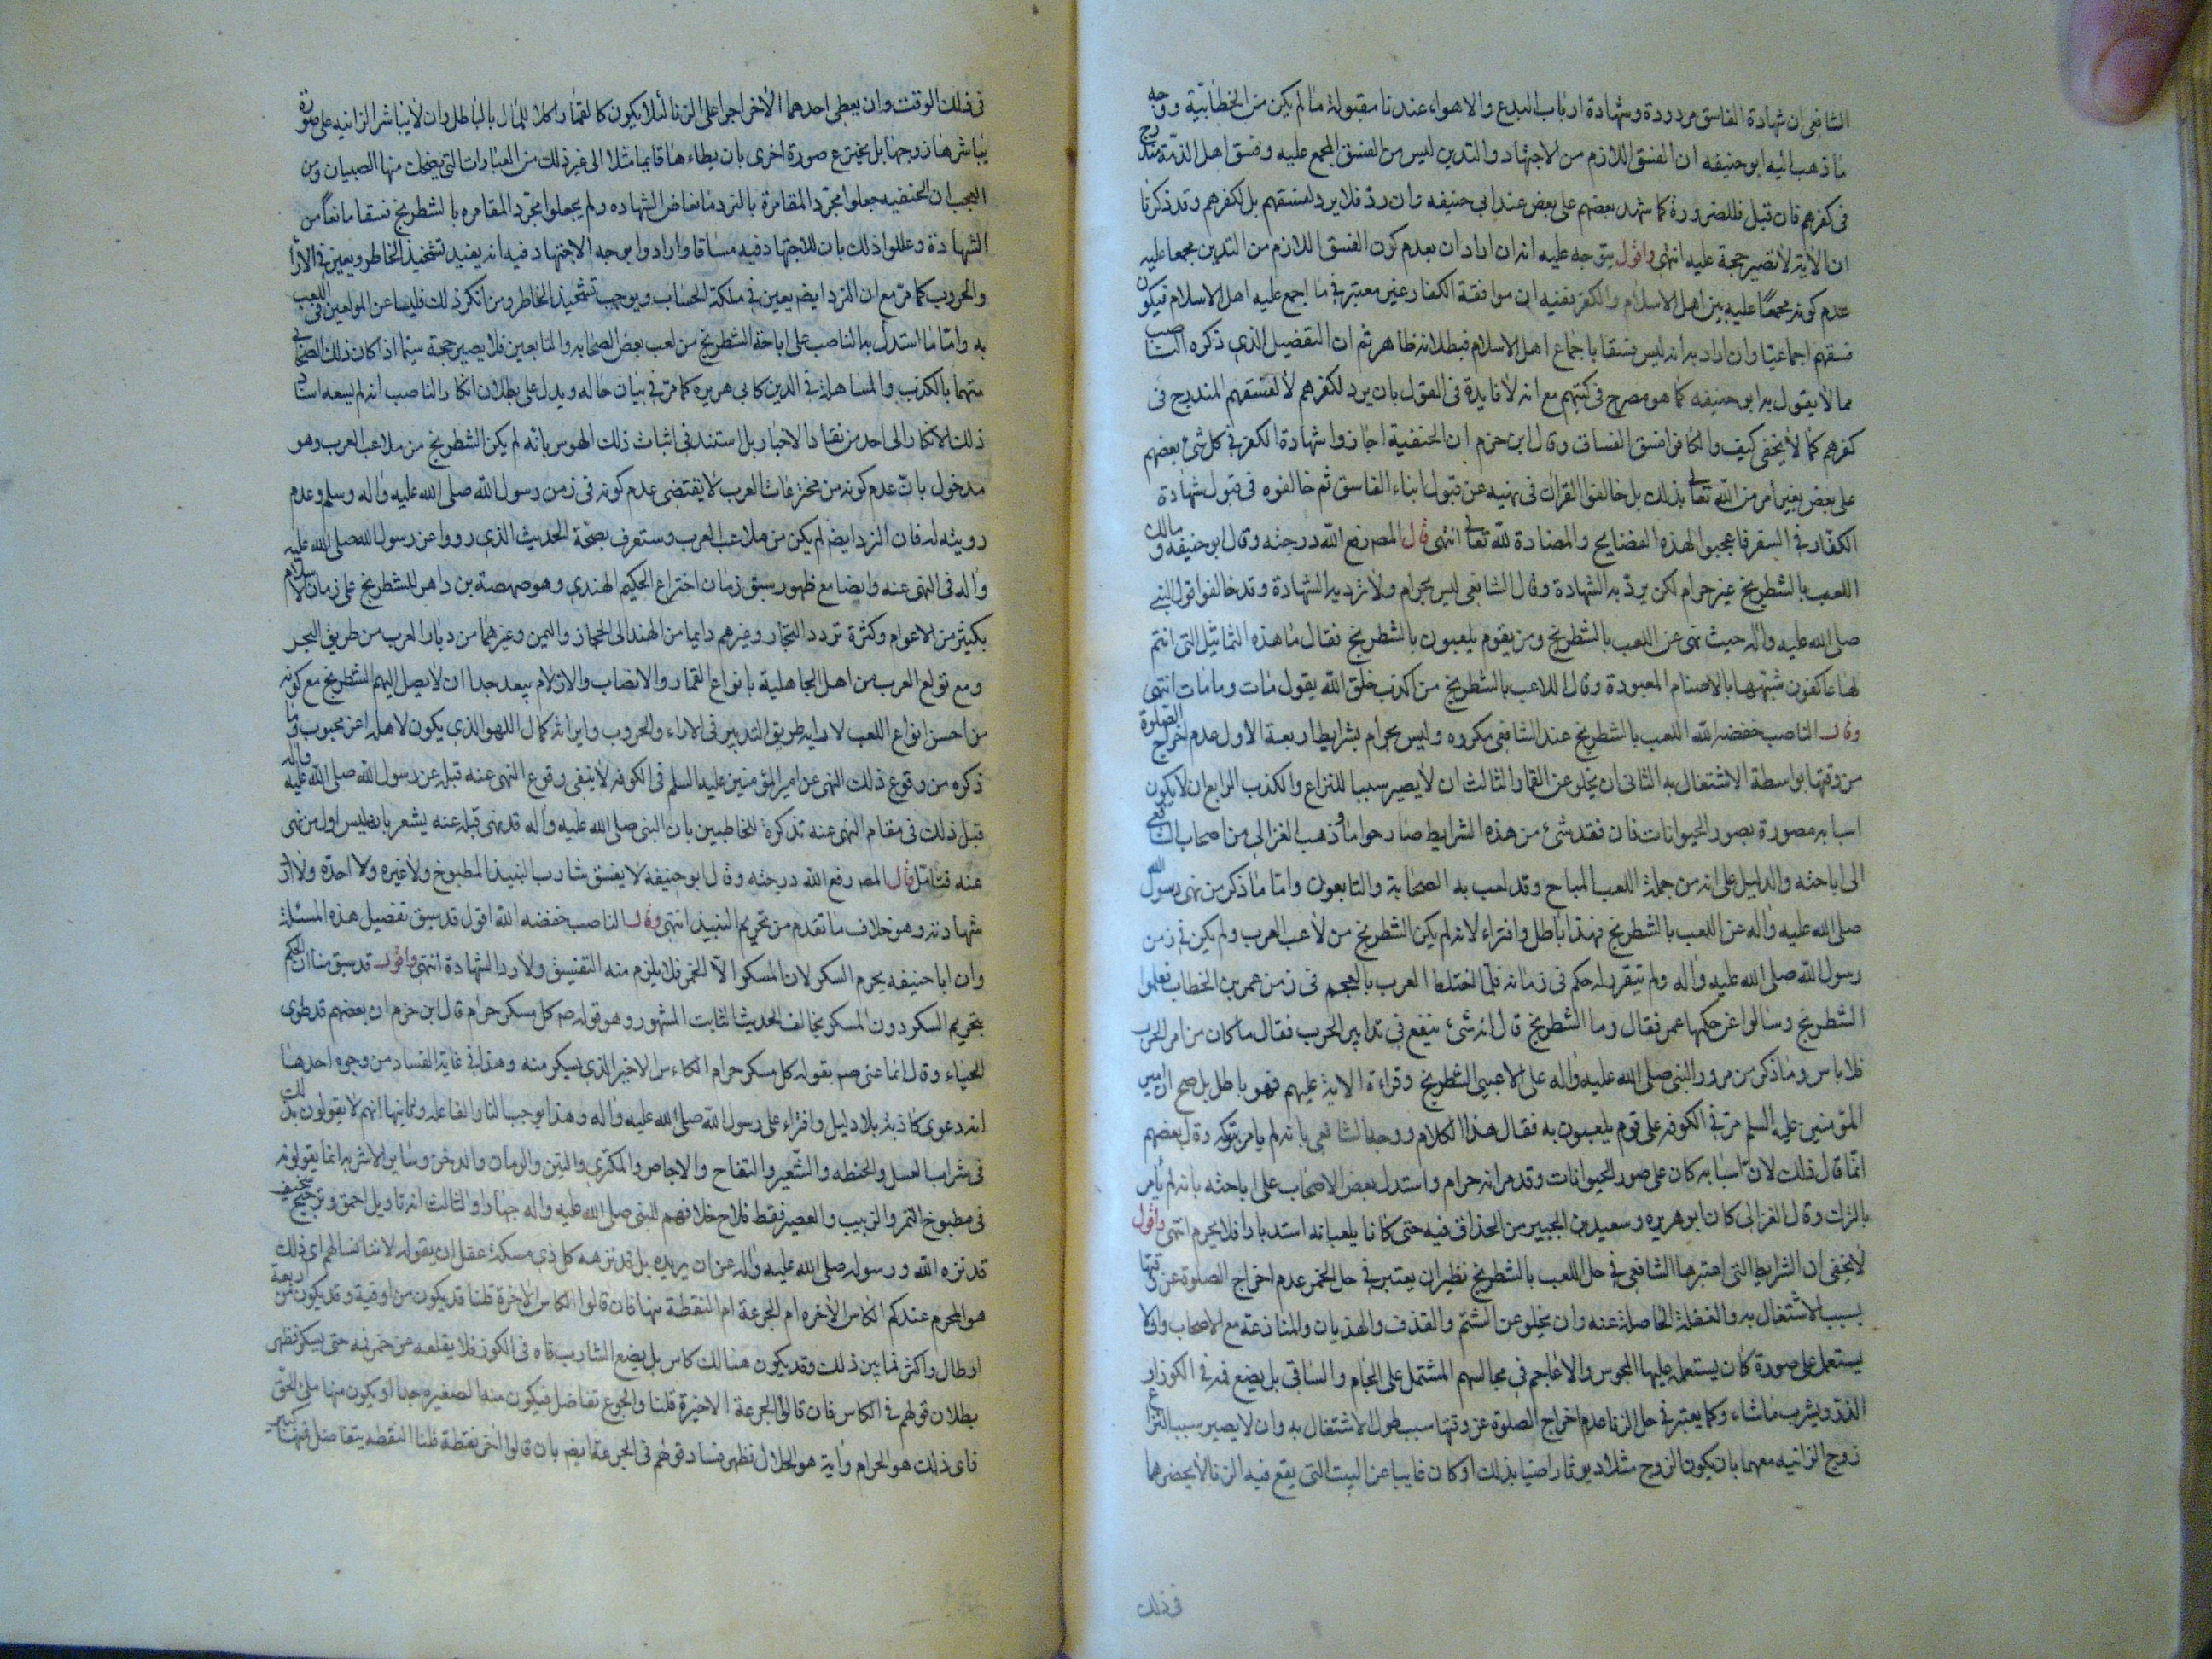 الشافعى ان شهادة الفاسق مردودة وشهادة ارباب البدع والاهواء عندنا مقبولة ما لم يكن من الخطابية ووجه
ما ذهب اليه ابو حنيفه ان الفسق اللازم من الاجتهاد والتدين ليس من الفسق المجمع عليه وفسق اهل الذمة مندرج
فى كفرهم فان قبل فللضرورة كما شهد بعضهم على بعض عند ابى حنيفه وان ردّ فلا يرد لفسقهم بل لكفرهم وقد ذكرنا
ان الاية لا تصير حجة عليه انتهى واقول يتوجه عليه انه ان اراد ان بعدم كون الفسق اللازم من التدين مجمعا عليه
عدم كونه مجمعًا عليه بين اهل الاسلام والكفر ففيه ان موافقة الكفار غير معتبر فى ما اجمع عليه اهل الاسلام فيكون
فسقهم اجماعيّا وان اراد به انه ليس فسقا باجماع اهل الاسلام فبطلانه ظاهر ثم ان التفصيل الذى ذكره الناصب
مما لا يقول به ابو حنيفه كما هو مصرح فى كتبهم مع انه لا فايدة فى القول بان يرد لكفرهم لا لفسقهم المندرج فى
كفرهم كما لا يخفى كيف والكافر افسق الفساق وقال ابن حزم ان الحنفية اجازوا شهادة الكفر فى كل شئ بعضهم
على بعض بغير امر من الله تعالى بذلك بل خالفوا القران فى نهيه عن قبول انباء الفاسق ثم خالفوه فى قبول شهادة
الكفار فى السفر فاعجبوا لهذه الفضايح والمضادة لله تعالى انتهى قال المصر رفع الله درجته وقال ابو حنيفه ومالك
اللعب بالشطرنج غير حرام لكن يردّ به الشهادة وقال الشافعى ليس بحرام ولا تردّ به الشهادة وقد خالفوا قول النبى
صلى الله عليه واله حيث نهى عن اللعب بالشطرنج ومرّ بقوم يلعبون بالشطرنج فقال ما هذه التماثيل التى انتم
لها عاكفون شبهها بالاصنام المعبودة وقال اللاعب بالشطرنج من اكذب خلق الله يقول مات وما مات انتهى
وقال الناصب خفضه الله اللعب بالشطرنج عند الشافعى مكروه وليس بحرام بشرايط اربعة الاول عدم اخراج الصلوة
من وقتها بواسطة الاشتغال به الثانى ان يخلو عن القمار الثالث ان لا يصير سببا للنزاع والكذب الرابع ان لا يكون
اسبابه مصورة بصور الحيوانات فان فقد شئ من هذه الشرايط صار حراما وذهب الغزالى من اصحاب الشافعى
الى اباحته والدليل على انه من جملة اللعب المباح وقد لعب به الصحابة والتابعون واما ما ذكر من نهى رسول الله
صلى الله عليه واله عن اللعب بالشطرنج فهذا باطل وافتراء لانه لم يكن الشطرنج من لاعب العرب ولم يكن فى زمن
رسول الله صلى الله عليه واله ولم يتقرر له حكم فى زمانه فلمّا اختلط العرب بالعجم فى زمن عمر بن الخطاب فعلموا
الشطرنج وسالوا عن حكمها عمر فقال وما الشطرنج قال انه شئ ينفع فى تدابير الحرب فقال ما كان من امر الحرب
فلا باس وما ذكر من مرور النبى صلى الله عليه واله على لاعبى الشطرنج وقراءة الاية عليهم فهو باطل بل صح ان امير
المؤمنين عليه السلم مرّ فى الكوفه على قوم يلعبون به فقال هذا الكلام ووجه الشافعى بانه لم يامر بتركه وقال بعضهم
انّما قال ذلك لانّ اسبابه كان على صور الحيوانات وقد مر انه حرام واستدل بعض الاصحاب على اباحته بانه لم يأمر
بالترك وقال الغزالى كان ابو هريره وسعيد بن الجبير من الحذاق فيه حتى كانا يلعبانه استدبارا فلا يحرم انتهى واقول
لا يخفى ان الشرايط التى اعتبرها الشافعى فى حل اللعب بالشطرنج نظير ان يعتبر فى حل الخمر عدم اخراج الصلوة عن وقتها
بسبب الاشتغال به والغفلة الحاصلة عنه وان يخلو عن الشتم والقذف والهذيان والمنازعة مع الاصحاب وان لا
يستعمل على صورة كان يستعمله عليها المجوس والاعاجم فى مجالسهم المشتمل على الجام والساقى بل يضع فمه فى الكوز او
الدنّ ويشرب ما شاء وكما يعتبر فى حل الزنا عدم اخراج الصلوة عن وقتها سبب طول الاشتغال به وان لا يصير سببا لنزاع
زوج الزانيه معهما بان يكون الزوج مثلا ديوثا راضيا بذلك او كان غايبا عن البيت التى يقع فيه الزنا لا يحضرهما
فى ذلك
فى ذلك الوقت وان يعطى احدهما الاخر اجرا على الزنا لئلا يكون كالقمار اكلا للمال بالباطل وان لا يباشر الزانيه على صورة
يباشرها زوجها بل يخترع صورة اخرى بان يطاءها قايما مثلا الى غير ذلك من العبارات التى يضحك منها الصبيان ومن
العجب ان الحنفيه جعلوا مجرّد المقامرة بالنرد مانعا من الشهاده ولم يجعلوا مجرّد المقامره بالشطرنج فسقا مانعًا من
الشهادة وعللوا ذلك بان للاجتهاد فيه مساقا وارادوا بوجه الاجتهاد فيه انه يفيد تشحيذ الخاطر ويعين فى الآرا
والحروب كما مرّ مع ان النرد ايضا يعين فى ملكة الحساب ويوجب تشحيذ الخاطر ومن انكر ذلك فليسا عن المولعين فى اللعب
به وامّا ما استدل به الناصب على اباحة الشطرنج من لعب بعض الصحابه والتابعين فلا يصير حجة سيّما اذا كان ذلك الصحابى
متهما بالكذب والمساهلة فى الدين كابى هريره كما مرّ فى بيان حاله ويدل على بطلان انكار الناصب انه لم يسعه اسناد
ذلك الانكار الى احد من نقاد الاخبار بل استند فى اثبات ذلك الهوس بانّه لم يكن الشطرنج من ملاعب العرب وهو
مدخول بانّ عدم كونه من مخترعات العرب لا يقتضى عدم كونه فى زمن رسول الله صلى الله عليه واله وسلم وعدم
رويته له فان النرد ايضا لم يكن من ملاعب العرب وستعرف بصحّة الحديث الذى رووا عن رسول الله صلى الله عليه
واله فى النهى عنه وايضا مع ظهور سبق زمان اختراع الحكيم الهندى وهو صهصة بن داهر للشطرنج على زمان الاسلام
بكثير من الاعوام وكثرة تردد التجار وغيرهم دايما من الهند الى الحجاز واليمن وغيرهما من ديار العرب من طريق البحر
ومع تولع العرب من اهل الجاهلية بانواع القمار والانصاب والازلام يبعد جدا ان لا يصل اليهم الشطرنج مع كونه
من احسن انواع اللعب لارايه طريق التدبير فى الاراء والحروب وايراثه كمال اللهو الذى يكون لاهله اعز محبوب وما
ذكره من وقوع ذلك النهى عن امير المؤمنين عليه السلم فى الكوفه لا ينفى وقوع النهى عنه قبله عن رسول الله صلى الله عليه واله
قبل ذلك فى مقام النهى عنه تذكرة للمخاطبين بان النبى صلى الله عليه واله قد نهى قبله عنه يشعر بانه ليس اول من نهى
عنه فتأمّل قال المصر رفع الله درجته وقال ابو حنيفه لا يفسق شارب النبيذ المطبوخ ولا غيره ولا احدّه ولا اردّ
شهادته وهو خلاف ما تقدم من تحريم النبيذ انتهى وقال الناصب خفضه الله اقول قد سبق تفصيل هذه المسئلة
وان ابا حنيفه يحرم السكر لان المسكر الّا الخمر فلا يلزم منه التفسيق ولا رد الشهادة انتهى واقول قد سبق منا ان الحكم
بتحريم السكر دون المسكر يخالف الحديث الثابت المشهور وهو قوله صم كل مسكر حرام قال ابن حزم ان بعضهم قد طوى
الحياء وقال انما عنى صم بقوله كل مسكر حرام الكاس الاخير الذى يسكر منه وهذا فى غاية الفساد من وجوه احدها
انه دعوى كاذبة بلا دليل وافتراء على رسول الله صلى الله عليه واله وهذا يوجب النار لفاعله وثانيها انهم لا يقولون بذلك
فى شراب العسل والحنطه والشّعير والتفاح والاجاص والكمثرى والتين والرمان والدخن وساير الاشربه انما يقولونه
فى مطبوخ التمر والزبيب والعصير فقط فلاح خلافهم للنبى صلى الله عليه واله جهارا والثالث انه تاويل احمق وترجيح سخيف
قد نزه الله ورسوله صلى الله عليه واله عن ان يريده بل قد نزهه كل ذى مسكة عقل ان يقوله لانا نسالهم اى ذلك
هو المحرم عندكم الكاس الاخره ام الجرعة ام النقطة منها فان قالوا الكاس الاخرة قلنا قد يكون من اوقية وقد يكون من اربعة
ارطال واكثر فما بين ذلك وقد يكون هنالك كاس بل يضع الشارب فاه فى الكوز فلا يقلعه عن خمر فيه حتى يسكر فظهر
بطلان قولهم فى الكاس فان قالوا الجرعة الاخيرة قلنا والجرع تفاضل فيكون منه الصغيره جدا او يكون منها ملئ الحلق
فاى ذلك هو الحرام واية هو الحلال فظهر فساد قولهم فى الجرعة ايضا بان قالوا النقطة قلنا النقطه يتفاضل فمنها